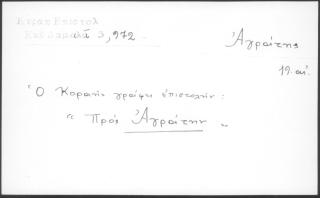 Κοραῆ Ἐπιστολ
3, 972
Ἀγραΐτης
19. αἰ.
Ὁ Κοραῆς γράφει ἐπιστολήν:
« Πρὸς Ἀγραΐτην »